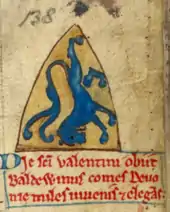 138
Die sēi valentini obiit
Baldewinus comes deuo
nie miles iuuenis ⁊ elegās.